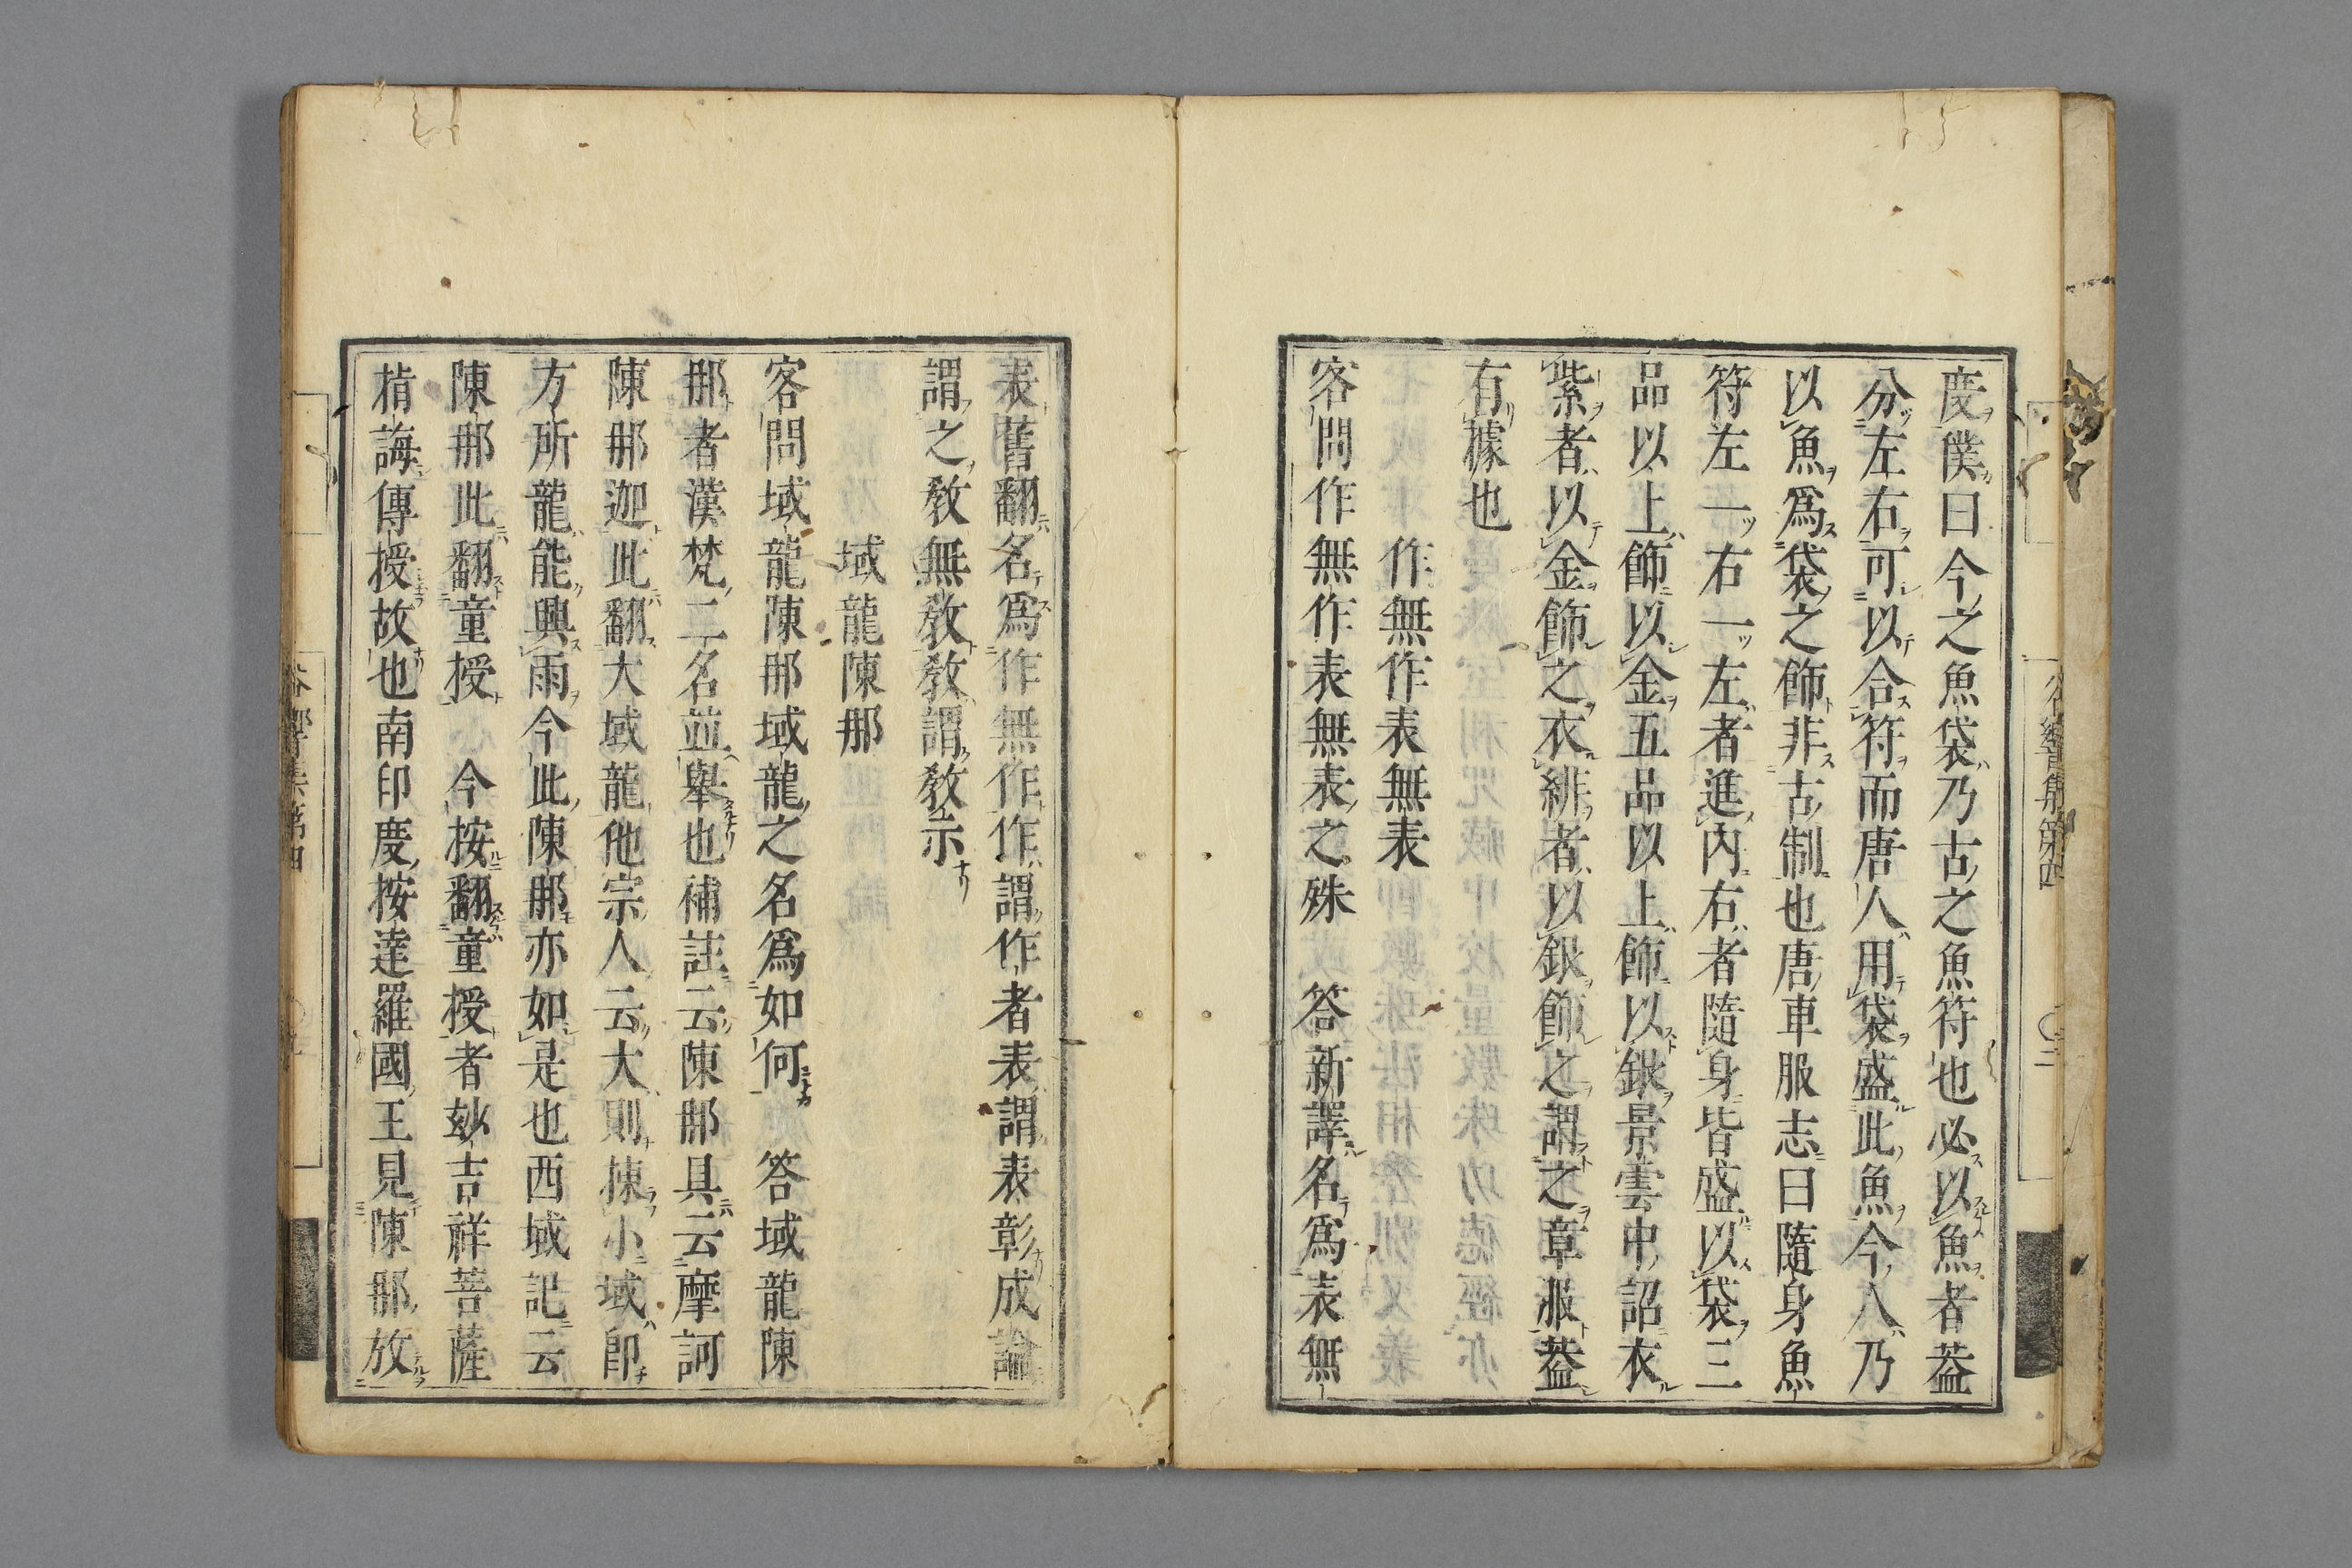 度僕曰今之魚袋乃古之魚符也必以魚者葢
分左右可以合符而唐人用袋盛此魚今人乃
以魚爲袋之飾非古制也唐車服志曰隨身魚
符左一右一左者進內右者隨身皆盛以袋三
品以上飾以金五品以上飾以銀景雲中詔衣
紫者以金飾之衣緋者以銀飾之謂之章服葢
有據也
作無作表無表
客問作無作表無表之殊 答新譯名爲表無
表舊翻名爲作無作作謂作者表謂表彰成論
謂之敎無敎敎謂敎示
域龍陳那
客問域龍陳那域龍之名爲如何 答域龍陳
那者漢梵二名並舉也補註云陳那具云摩訶
陳那迦此翻大域龍他宗人云大則揀小域卽
方所龍能興雨今此陳那亦如是也西域記云
陳那此翻童授 今按翻童授者玅吉祥菩薩
指誨傳授故也南印度按達羅國王見陳那放
谷響集第四